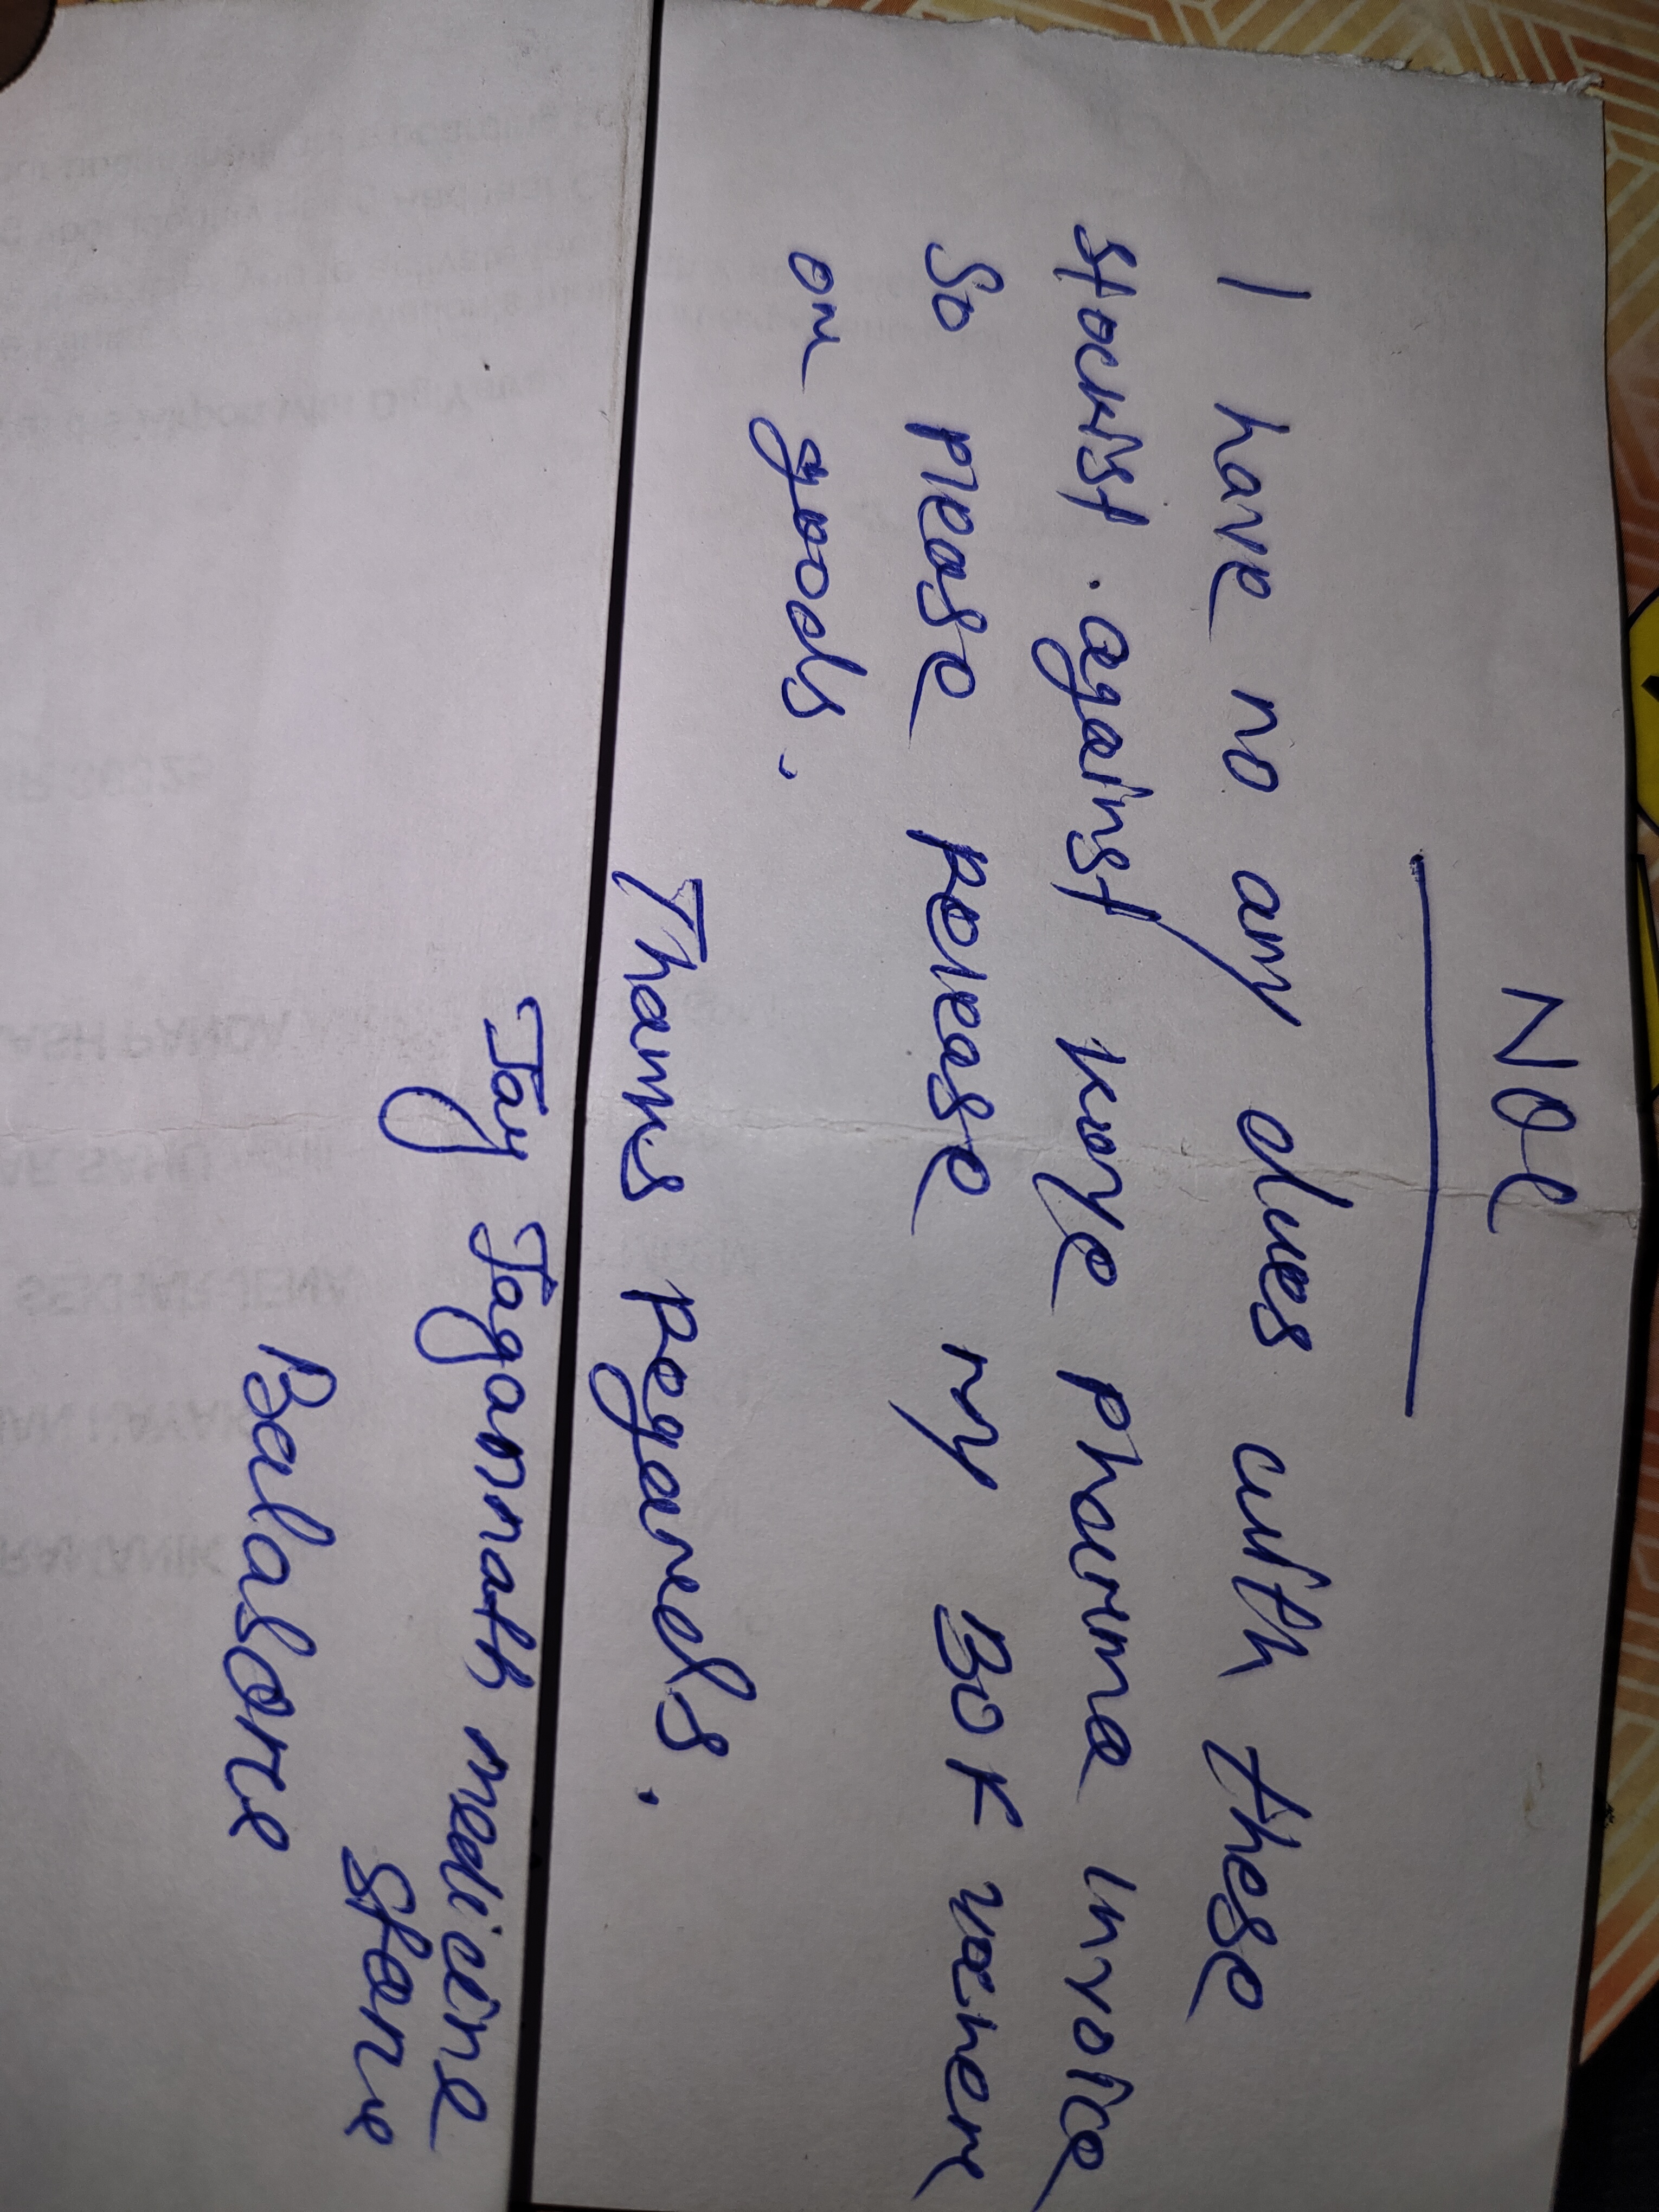 NOC
I have no any dues with these
stockist. against kaye pharma invoice
so please release my BOX where
on goods.
Thanks regards.
Jay Jagannath medicine
store
Balasore